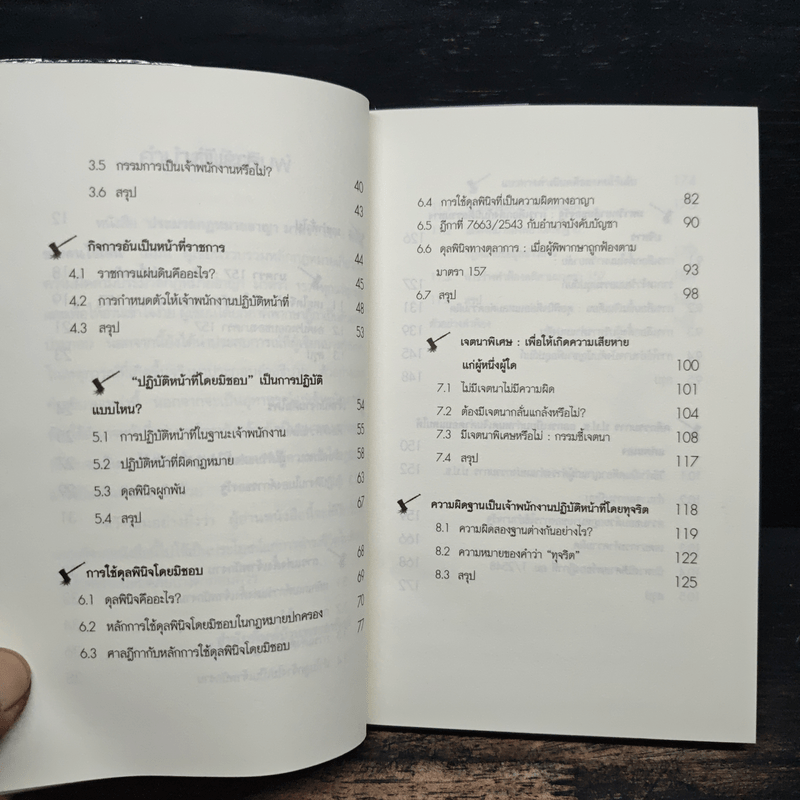 3.5 กรรมการเป็นเจ้าพนักงานหรือไม่? 40
3.6 สรุป 43
กิจการอันเป็นหน้าที่ราชการ 44
4.1 ราชการแผ่นดินคืออะไร? 45
4.2 การกำหนดตัวให้เจ้าพนักงานปฏิบัติหน้าที่ 48
4.3 สรุป 53
"ปฏิบัติหน้าที่โดยมิชอบ" เป็นการปฏิบัติ
แบบไหน? 54
5.1 การปฏิบัติหน้าที่ในฐานะเจ้าพนักงาน 55
5.2 ปฏิบัติหน้าที่ผิดกฎหมาย 58
5.3 ดุลพินิจผูกพัน 63
5.4 สรุป 67
การใช้ดุลพินิจโดยมิชอบ 68
6.1 ดุลพินิจคืออะไร? 69
6.2 หลักการใช้ดุลพินิจโดยมิชอบในกฎหมายปกครอง 70
6.3 ศาลฎีกากับหลักการใช้ดุลพินิจโดยมิชอบ 77
6.4 การใช้ดุลพินิจที่เป็นความผิดทางอาญา 82
6.5 ฎีกาที่ 7663/2543 กับอำนาจบังคับบัญชา 90
6.6 ดุลพินิจทางตุลาการ : เมื่อผู้พิพากษาถูกฟ้องตาม
มาตรา 157 93
6.7 สรุป 98
เจตนาพิเศษ : เพื่อให้เกิดความเสียหาย
แก่ผู้หนึ่งผู้ใด 100
7.1 ไม่มีเจตนาไม่มีความผิด 101
7.2 ต้องมีเจตนากลั่นแกล้งหรือไม่? 104
7.3 มีเจตนาพิเศษหรือไม่ : กรรมชี้เจตนา 108
7.4 สรุป 117
ความผิดฐานเป็นเจ้าพนักงานปฏิบัติหน้าที่โดยทุจริต 118
8.1 ความผิดสองฐานต่างกันอย่างไร? 119
8.2 ความหมายของคำว่า "ทุจริต" 122
8.3 สรุป 125